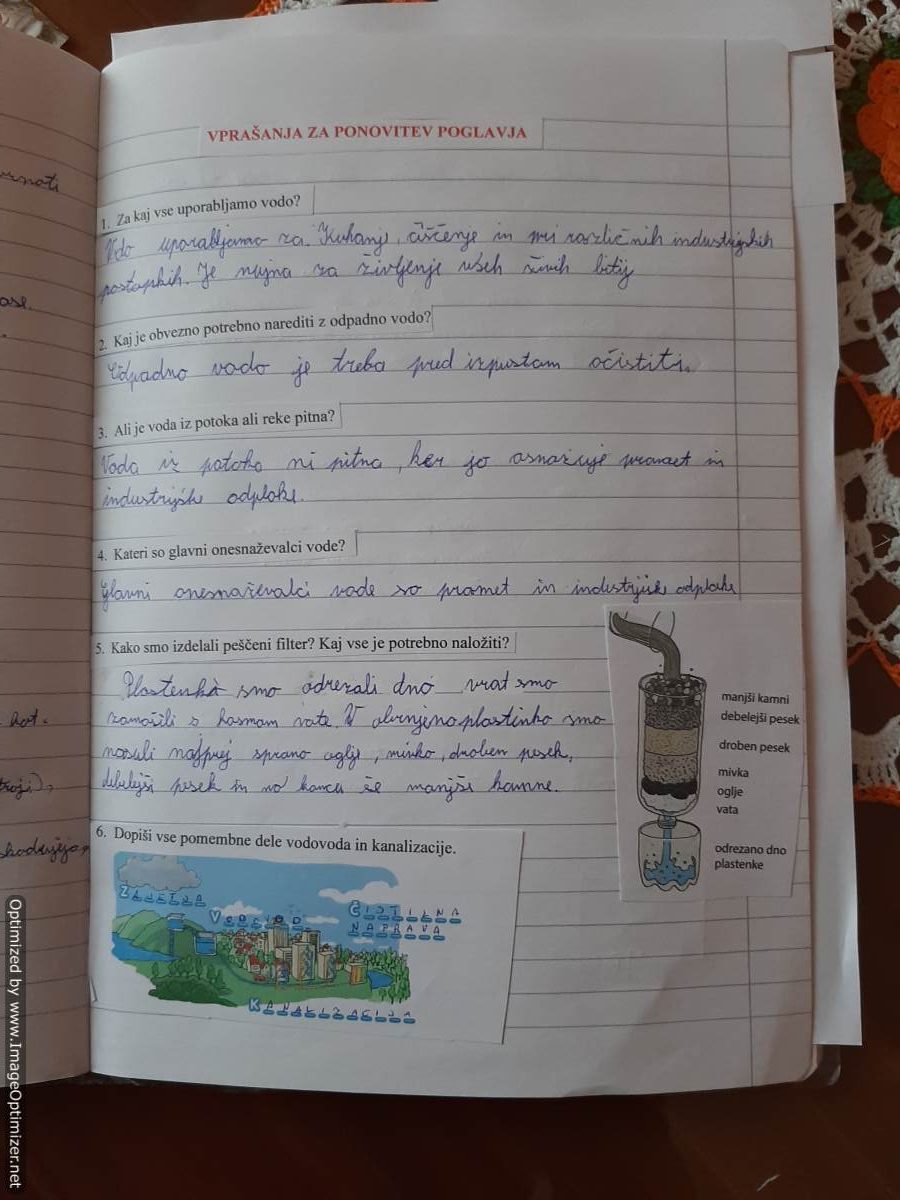 VPRAŠANJA ZA PONOVITEV POGLAVJA
1. Za kaj vse uporabljamo vodo?
Vodo uporabljamo za. Kuhanj, čiščenje in mi različnih industrijskih
postopkih. Je nujna za življenje vseh živih bitij
2. Kaj je obvezno potrebno narediti z odpadno vodo?
Odpadno vodo je treba pred izpustam očistiti.
3. Ali je voda iz potoka ali reke pitna?
Voda iz potoka ni pitna, ker jo promet in
industrijske odplake.
4. Kateri so glavni onesnaževalci vode?
Glavni onesnaževalci vode so promet in odplake
5. Kako smo izdelali peščeni filter? Kaj vse je potrebno naložiti?
smo odrezali dno vrat smo
zamašili s kosmam vate. V smo
nasuli najprej sprano oglje, mivko, droben pesek,
debelejši pesek in na koncu še manjši kamne.
manjši kamni
debelejši pesek
droben pesek
mivka
oglje
vata
odrezano dno
plastenke
6. Dopiši vse pomembne dele vodovoda in kanalizacije.
ZAJETJA
VODOVOD
ČISTILNA
NAPRAVA
KANALIZACIJA
ase.
kat.
troji),
Optimized by www.ImageOptimizer.net